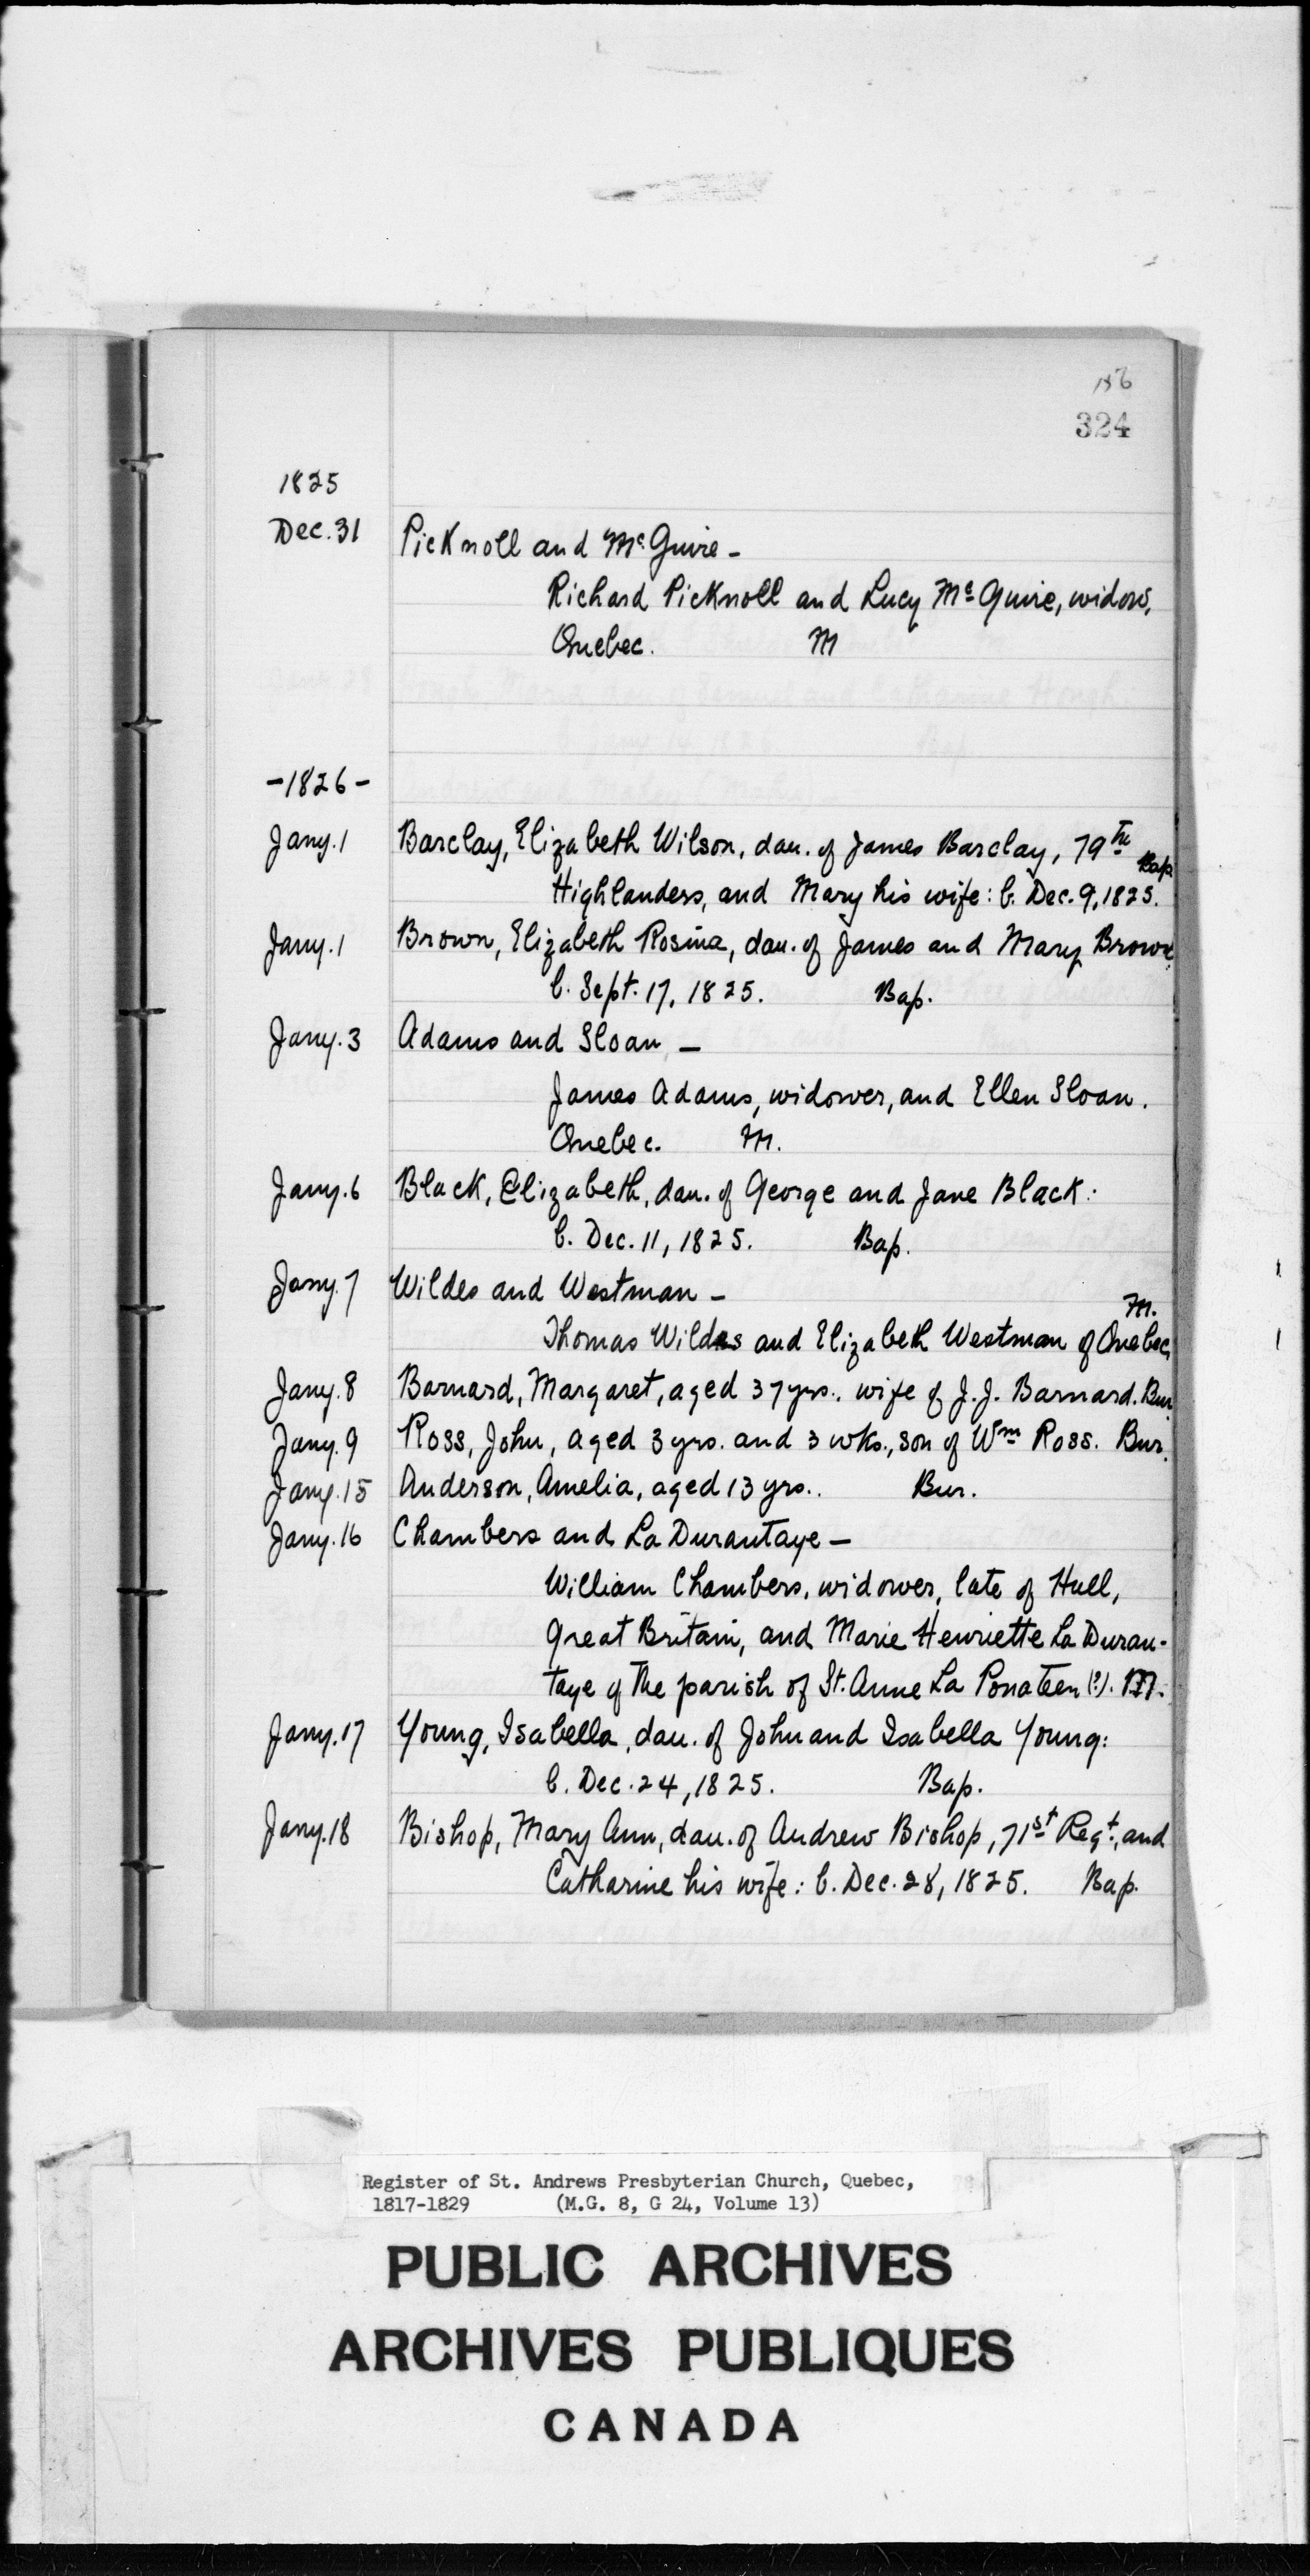 186
324
1825
Dec. 31 Picknoll and McGuire -
Richard Picknoll and Lucy McGuire, widow,
Quebec. M
-1826-
Jany. 1 Barclay, Elizabeth Wilson, dau. of James Barclay, 79th Bap.
Highlanders, and Mary his wife: b. Dec. 9, 1825.
Jany. 1 Brown, Elizabeth Rosina, dau. of James and Mary Brown:
b. Sept. 17, 1825. Bap.
Jany. 3 Adams and Sloan -
James Adams, widower, and Ellen Sloan.
Quebec. M.
Jany. 6 Black, Elizabeth, dau. of George and Jane Black:
b. Dec. 11, 1825. Bap.
Jany. 7 Wildes and Westman -
M.
Thomas Wildes and Elizabeth Westman of Quebec.
Jany. 8 Barnard, Margaret, aged 37 yrs., wife of J. J. Barnard. Bur.
Jany. 9 Ross, John, aged 3 yrs. and 3 wks., son of Wm Ross. Bur.
Jany. 15 Anderson, Amelia, aged 13 yrs.. Bur.
Jany. 16 Chambers and La Durantaye -
William Chambers, widower, late of Hull,
Great Britain, and Marie Henriette La Duran-
taye of the parish of St. Anne La Ponateen (?). M.
Jany. 17 Young, Isabella, dau. of John and Isabella Young:
b. Dec. 24, 1825. Bap.
Jany. 18 Bishop, Mary Ann, dau. of Andrew Bishop, 71st Regt., and
Catharine his wife: b. Dec. 28, 1825. Bap.
Register of St. Andrews Presbyterian Church, Quebec,
1817-1829 (M.G. 8, G 24, Volume 13)
PUBLIC ARCHIVES
ARCHIVES PUBLIQUES
CANADA